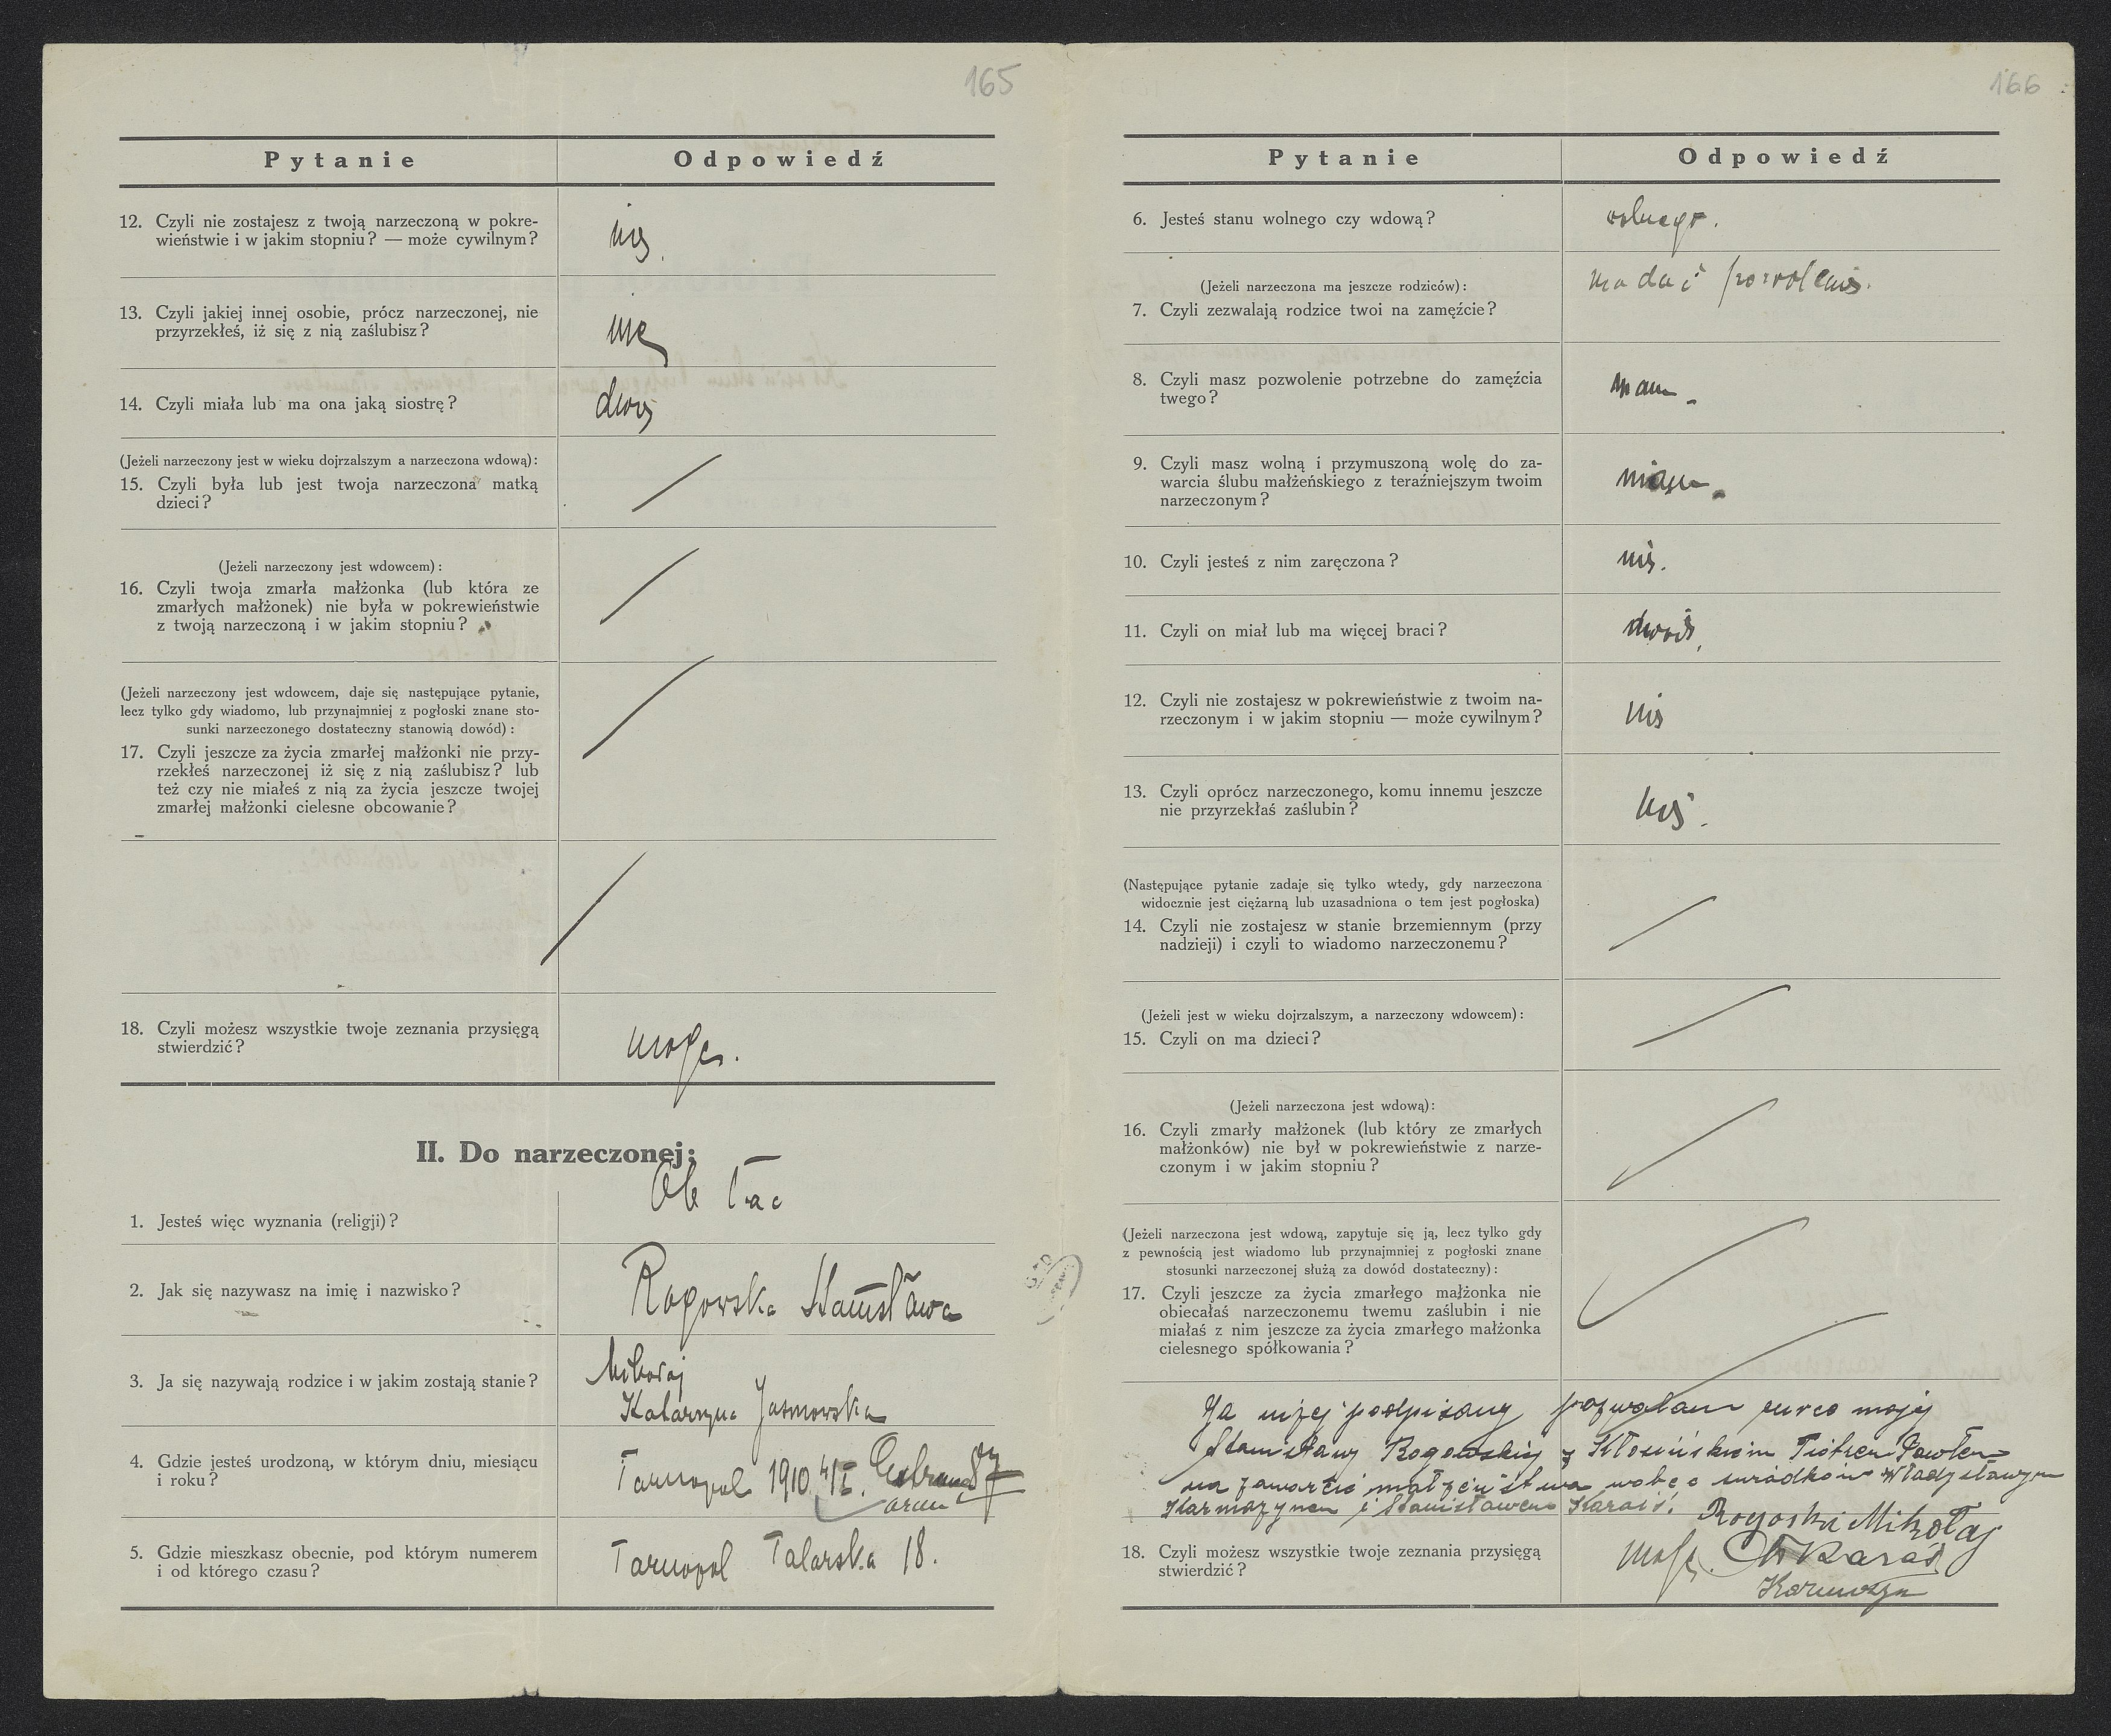 165
Pytanie Odpowiedź
12. Czyli nie zostajesz z twoją narzeczoną w pokre-
wieństwie i w jakim stopniu? — może cywilnym?
nie.
13. Czyli jakiej innej osobie, prócz narzeczonej, nie
przyrzekłeś, iż się z nią zaślubisz?
nie
14. Czyli miała lub ma ona jaką siostrę?
dwie
(Jeżeli narzeczony jest w wieku dojrzalszym a narzeczona wdową):
15. Czyli była lub jest twoja narzeczona matką
dzieci?
(Jeżeli narzeczony jest wdowcem):
16. Czyli twoja zmarła małżonka (lub która ze
zmarłych małżonek) nie była w pokrewieństwie
z twoją narzeczoną i w jakim stopniu?
(Jeżeli narzeczony jest wdowcem, daje się następujące pytanie,
lecz tylko gdy wiadomo, lub przynajmniej z pogłoski znane sto-
sunki narzeczonego dostateczny stanowią dowód):
17. Czyli jeszcze za życia zmarłej małżonki nie przy-
rzekłeś narzeczonej iż się z nią zaślubisz? lub
też czy nie miałeś z nią za życia jeszcze twojej
zmarłej małżonki cielesne obcowanie?
18. Czyli możesz wszystkie twoje zeznania przysięgą
stwierdzić?
mogę.
II. Do narzeczonej:
1. Jesteś więc wyznania (religji)?
Ob łac
2. Jak się nazywasz na imię i nazwisko?
Rogowska Stanisława
3. Ja się nazywają rodzice i w jakim zostają stanie?
Mikołaj
Katarzyna Jasnowska
4. Gdzie jesteś urodzoną, w którym dniu, miesiącu
i roku?
Tarnopol 1910 4/I. 87
5. Gdzie mieszkasz obecnie, pod którym numerem
i od którego czasu?
Tarnopol Talarska 18.
166
Pytanie Odpowiedź
6. Jesteś stanu wolnego czy wdową?
wolnego.
(Jeżeli narzeczona ma jeszcze rodziców):
7. Czyli zezwalają rodzice twoi na zamęźcie?
ma dać pozwolenie.
8. Czyli masz pozwolenie potrzebne do zamęźcia
twego?
mam.
9. Czyli masz wolną i przymuszoną wolę do za-
warcia ślubu małżeńskiego z teraźniejszym twoim
narzeczonym?
mam.
10. Czyli jesteś z nim zaręczona?
nie.
11. Czyli on miał lub ma więcej braci?
12. Czyli nie zostajesz w pokrewieństwie z twoim na-
rzeczonym i w jakim stopniu — może cywilnym?
nie
13. Czyli oprócz narzeczonego, komu innemu jeszcze
nie przyrzekłaś zaślubin?
nie.
(Następujące pytanie zadaje się tylko wtedy, gdy narzeczona
widocznie jest ciężarną lub uzasadniona o tem jest pogłoska)
14. Czyli nie zostajesz w stanie brzemiennym (przy
nadzieji) i czyli to wiadomo narzeczonemu?
(Jeżeli jest w wieku dojrzalszym, a narzeczony wdowcem):
15. Czyli on ma dzieci?
(Jeżeli narzeczona jest wdową):
16. Czyli zmarły małżonek (lub który ze zmarłych
małżonków) nie był w pokrewieństwie z narze-
czonym i w jakim stopniu?
(Jeżeli narzeczona jest wdową, zapytuje się ją, lecz tylko gdy
z pewnością jest wiadomo lub przynajmniej z pogłoski znane
stosunki narzeczonej służą za dowód dostateczny):
17. Czyli jeszcze za życia zmarłego małżonka nie
obiecałaś narzeczonemu twemu zaślubin i nie
miałaś z nim jeszcze za życia zmarłego małżonka
cielesnego spółkowania?
Ja niżej podpisany pozwalam curce mojej
Stanisławy Rogowskiej z Kłosińskim Piotrem Pawłem
na zawarcie małżeństwa wobec świadków Władysławym
Karmazynem i Stanisławem Karaś.
Rogoski Mikołaj
18. Czyli możesz wszystkie twoje zeznania przysięgą
stwierdzić?
mogę. St Karaś
Karmazyn